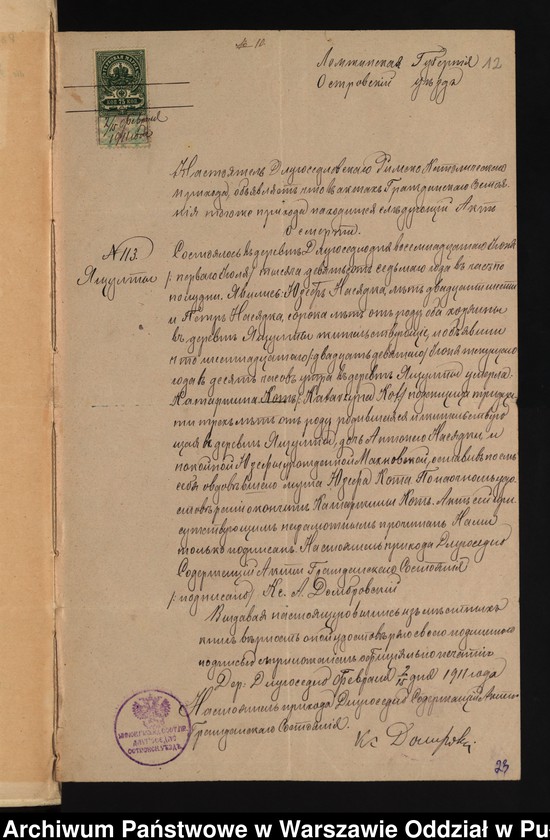 № 10.
Ломжинская Губернія 12
Островскій уѣздъ
КОП 75 КОП
2/15 февраля
1911 года
Настоятель Длугоседловскаго Римско-Католическаго
прихода, объявляетъ что въ актахъ Гражданскаго Состоя-
нія того же прихода находится слѣдующій Актъ
о смерти.
№ 113.
Яшулты
Состоялось въ деревнѣ Длугоседло восемнадцатаго Іюня
/перваго Іюля/ тысяча девятьсотъ седьмаго года въ часъ по
полудни. Явились: Юзефъ Насядка, лѣтъ двадцати шести
и Петръ Насядка, сорока лѣтъ отъ роду, оба хозяины
въ деревнѣ Яшулты жительствующіе, и объявили
что шестнадцатаго /двадцать девятаго/ Іюня текущаго
года въ десять часовъ утра въ деревнѣ Яшулты умерла
Катаржина Котъ /Katarzyna Kot/ тридца-
ти трехъ лѣтъ отъ роду, родившаяся и жительствую-
щая въ деревнѣ Яшулты, дочь Антонего Насядки и
покойной Юзефы урожденной Маховской, оставивъ послѣ
себя овдовѣвшаго мужа Юзефа Кота. По наочномъ удо-
стовѣреніи о кончинѣ Катаржины Котъ. Актъ сей при-
сутствующимъ неграмотнымъ прочитанъ, Нами
только подписанъ. Настоятель прихода Длугоседло
Содержащій Акты Гражданскаго Состоянія
/подписано/ Кс. А. Домбровскій
Выдавая настоящую выпись изъ метрическихъ
книгъ вѣрность оной удостовѣряю своею
подписью съ приложеніемъ оффиціальной печати
Дер. Длугоседло Февраля 2/15 дня 1911 года
Настоятель прихода Длугоседло Содержащій Акты
Гражданскаго Состоянія.
Кс
23
Archiwum Państwowe w Warszawie Oddział w Pu